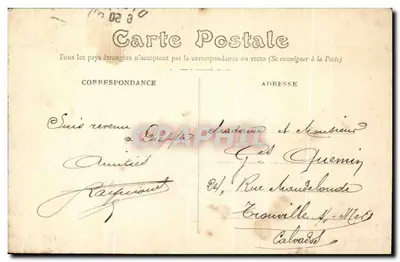 Carte Postale
Tous les pays étrangers n'acceptent pas la correspondance au recto (Se renseigner à la Poste)
CORRESPONDANCE
ADRESSE
Suis revenu
Amitiés
Raymond
Madame et Monsieur
Gges Quemin
24, Rue Mandelonde
Trouville s/ Mer
Calvados